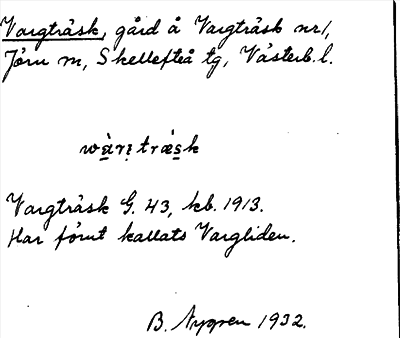 Vargträsk, gård å Vargträsk nr 1,
Jörn sn, Skellefteå tg, Västerb. l.
wàri̯træ̀sk
Vargträsk G. 43, kb. 1913.
Har förut kallats Vargliden.
B. Nygren 1932.